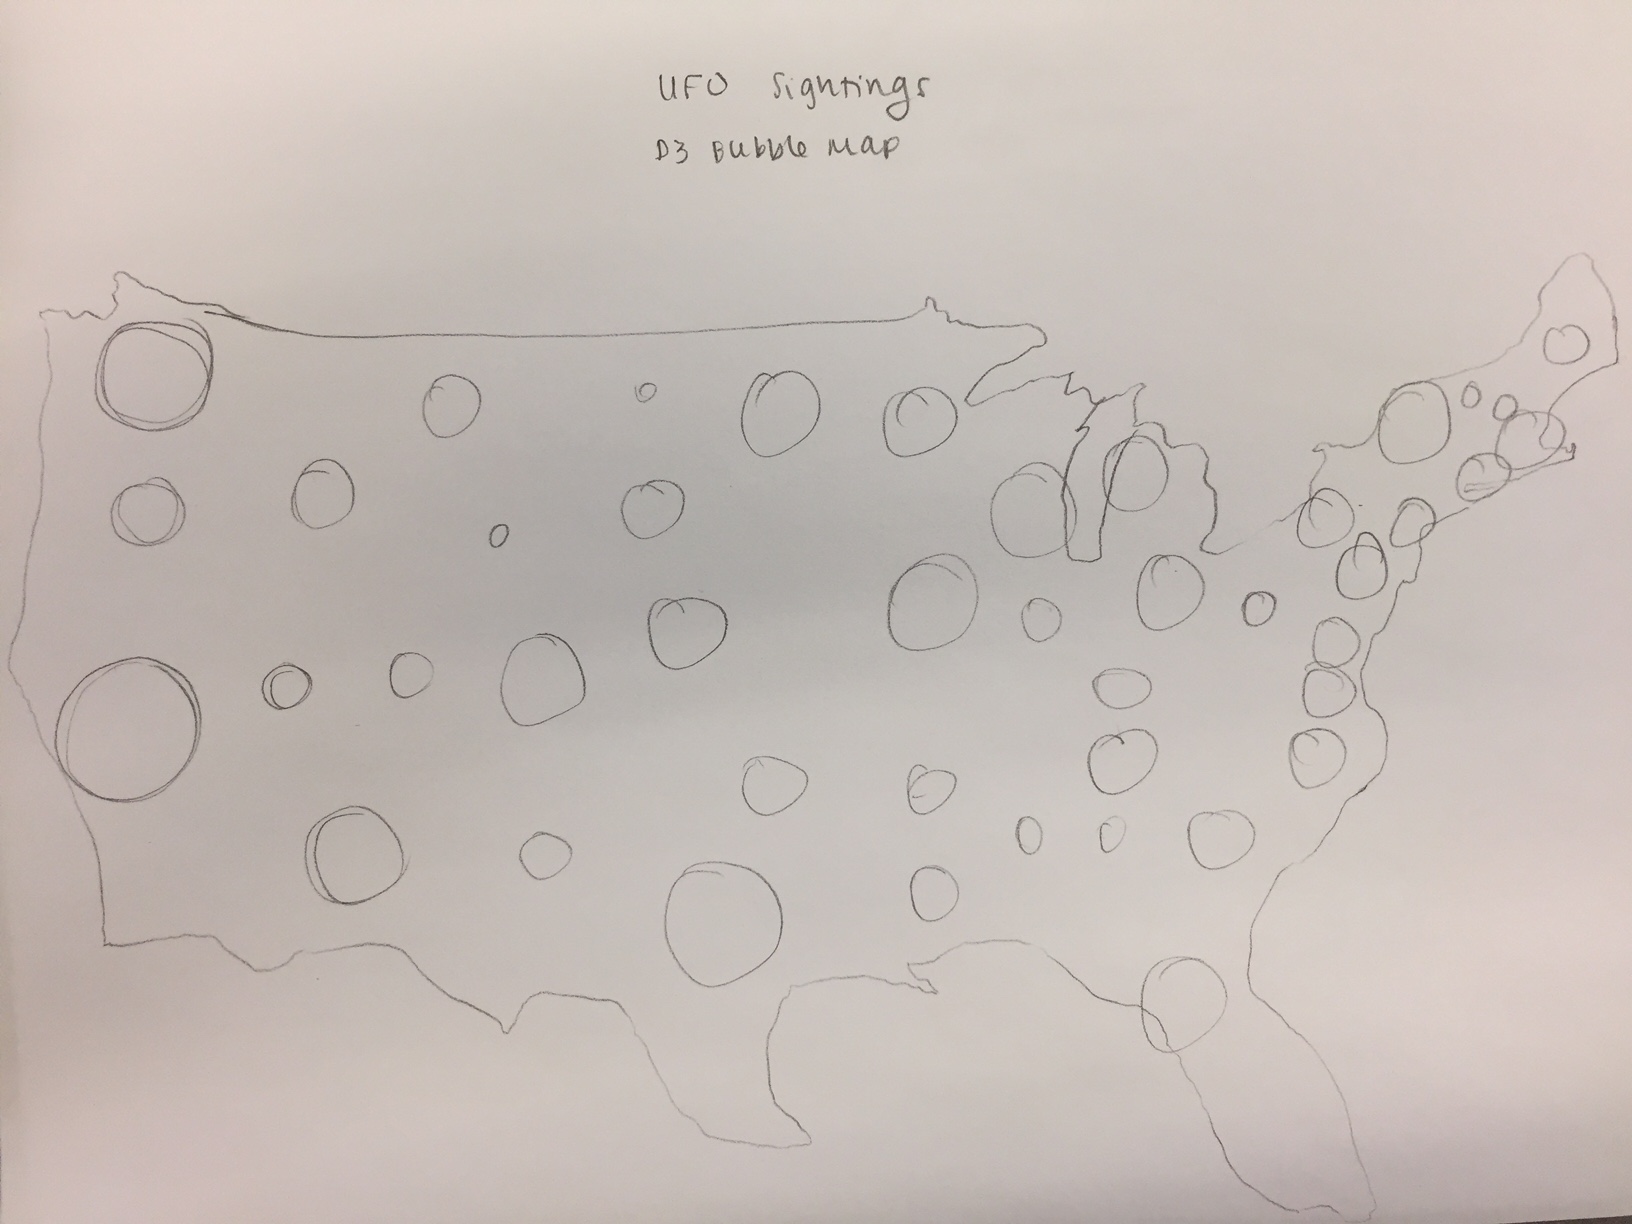 UFO Sightings
D3 Bubble Map